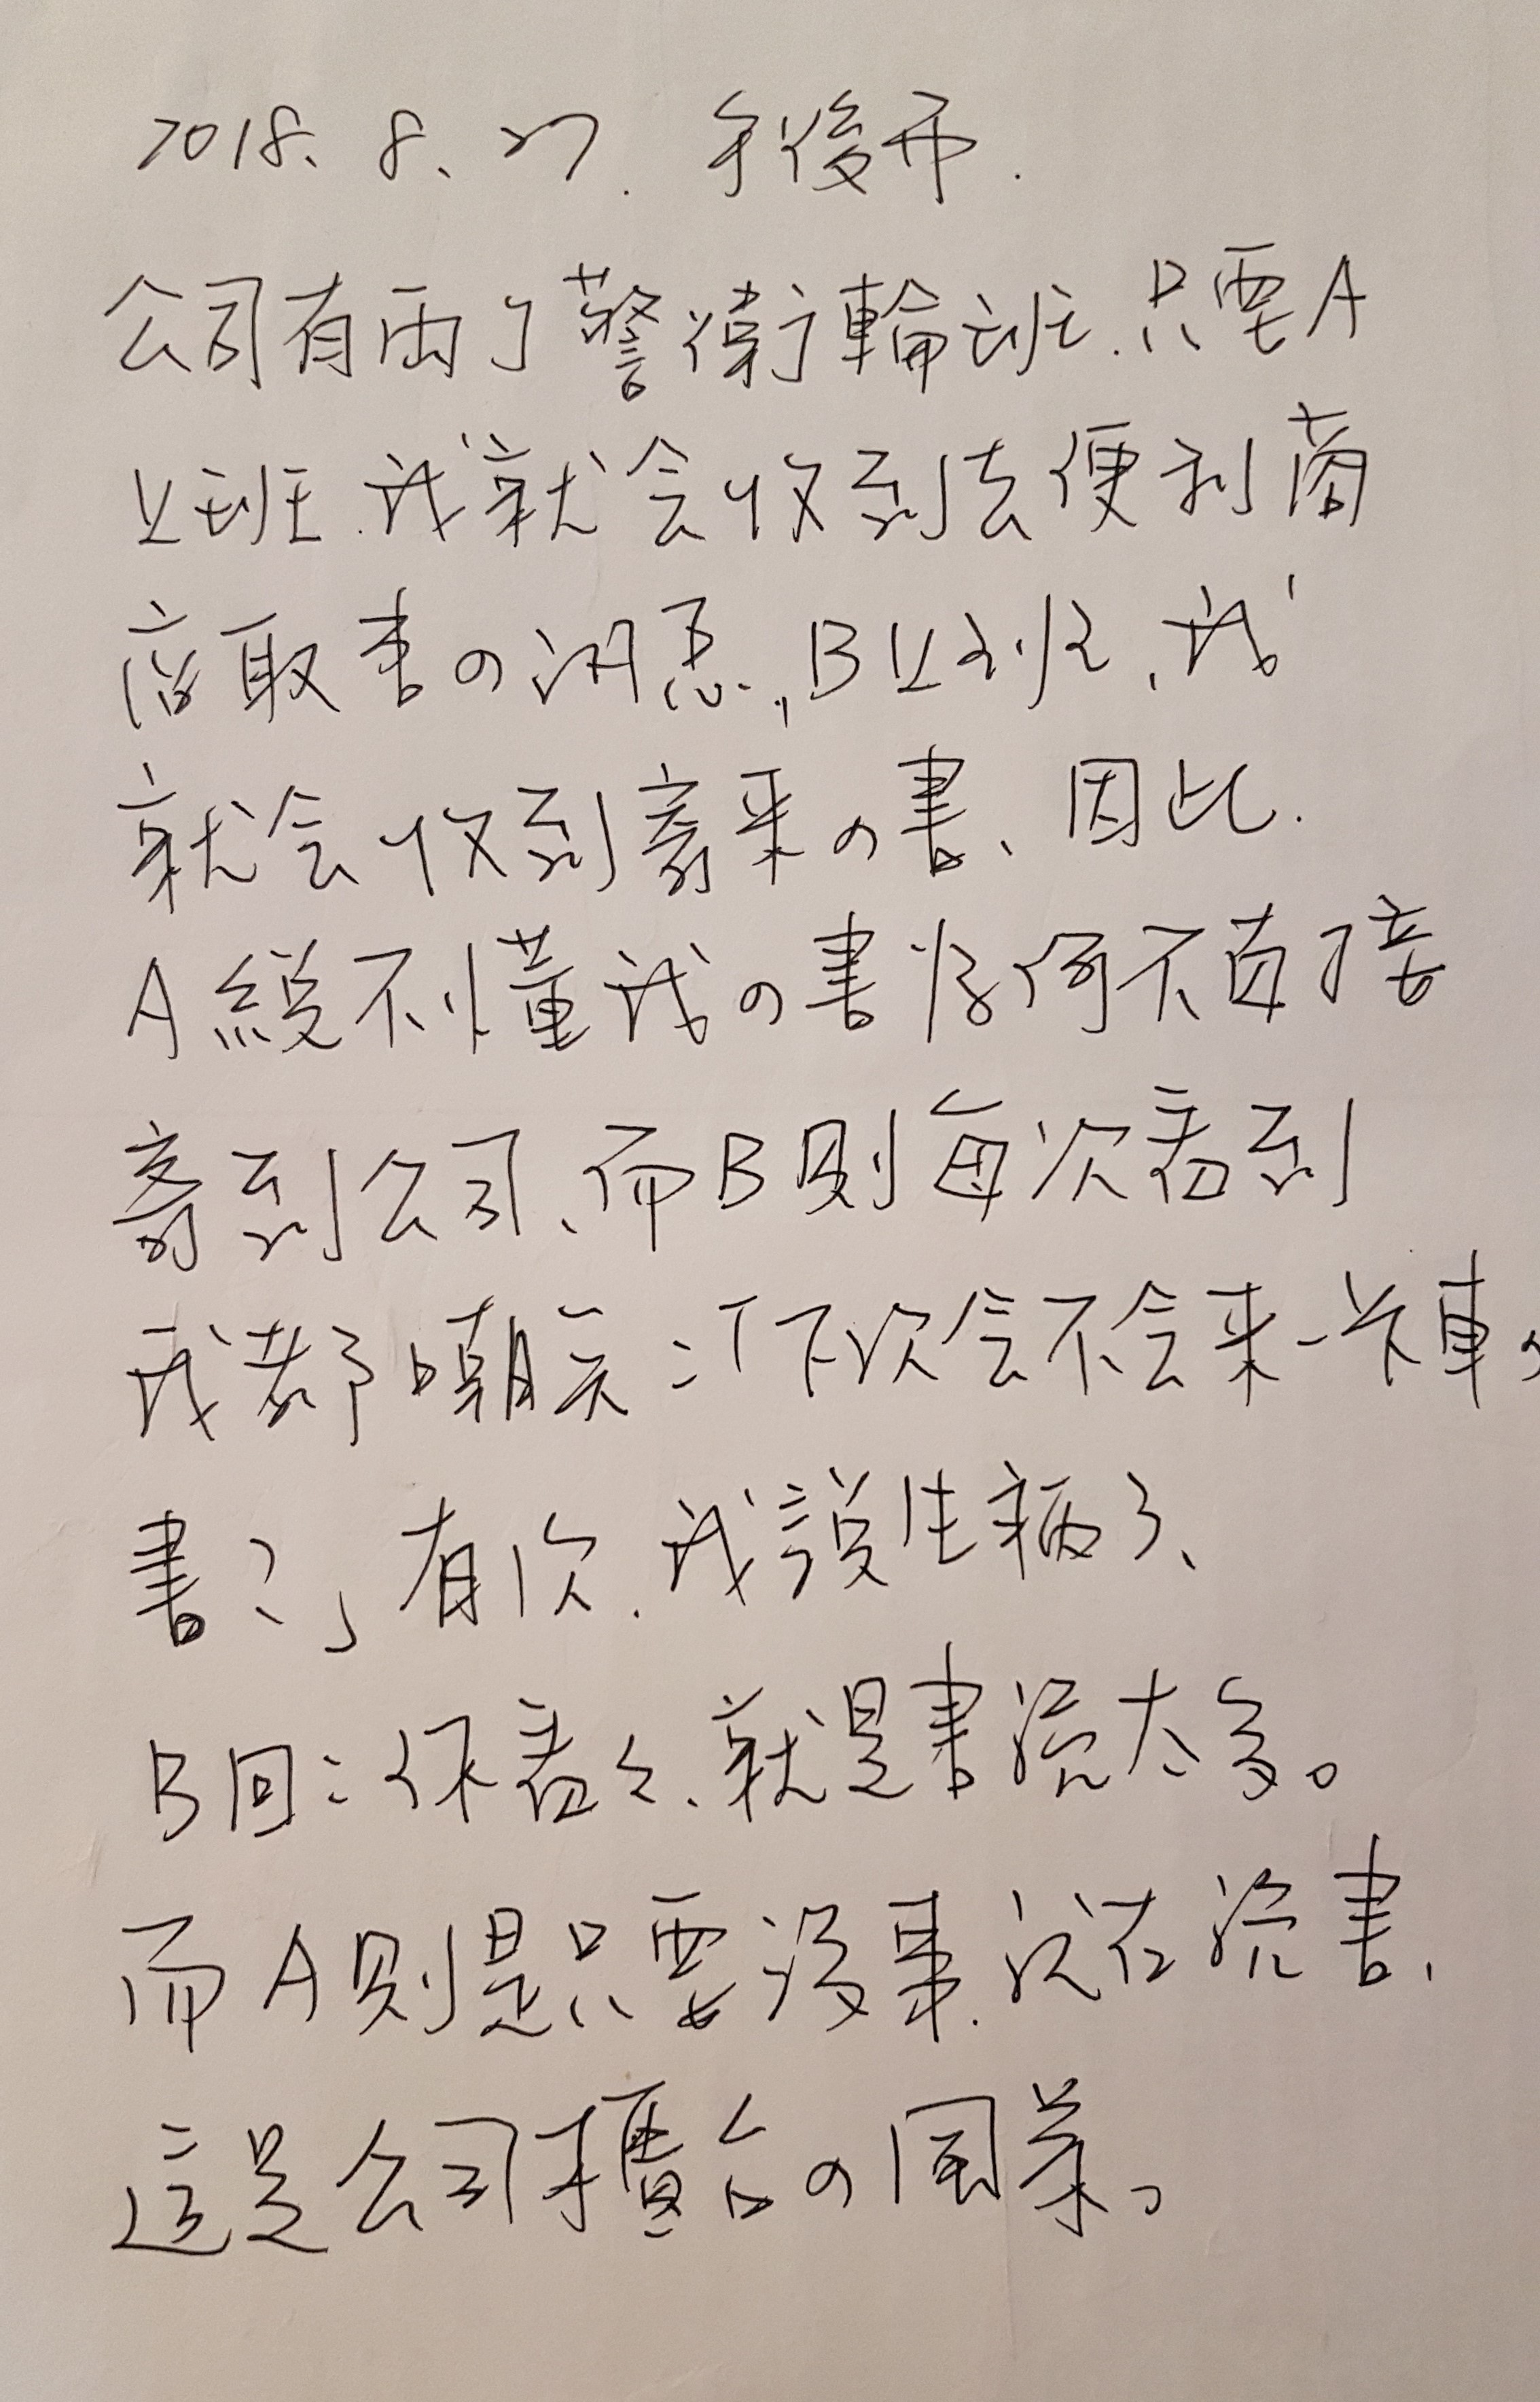 2018.8.27. 午後雨.
公司有兩个警衛輪班.只要A
上班.我就会收到去便利商
店取書の訊息,B上班、我
就会收到寄来の書、因此.
A總不懂我の書為何不直接
寄到公司、而B則每次看到
我都嘲笑:「下次会不会来一卡車の
書?」有次.我說生病了、
B回:你看々、就是書讀太多。
而A則是只要沒事.就在讀書、
這是公司櫃台の風景。